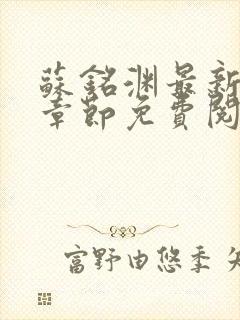 蘇銘淵最新
章節免費閱
富野由悠季